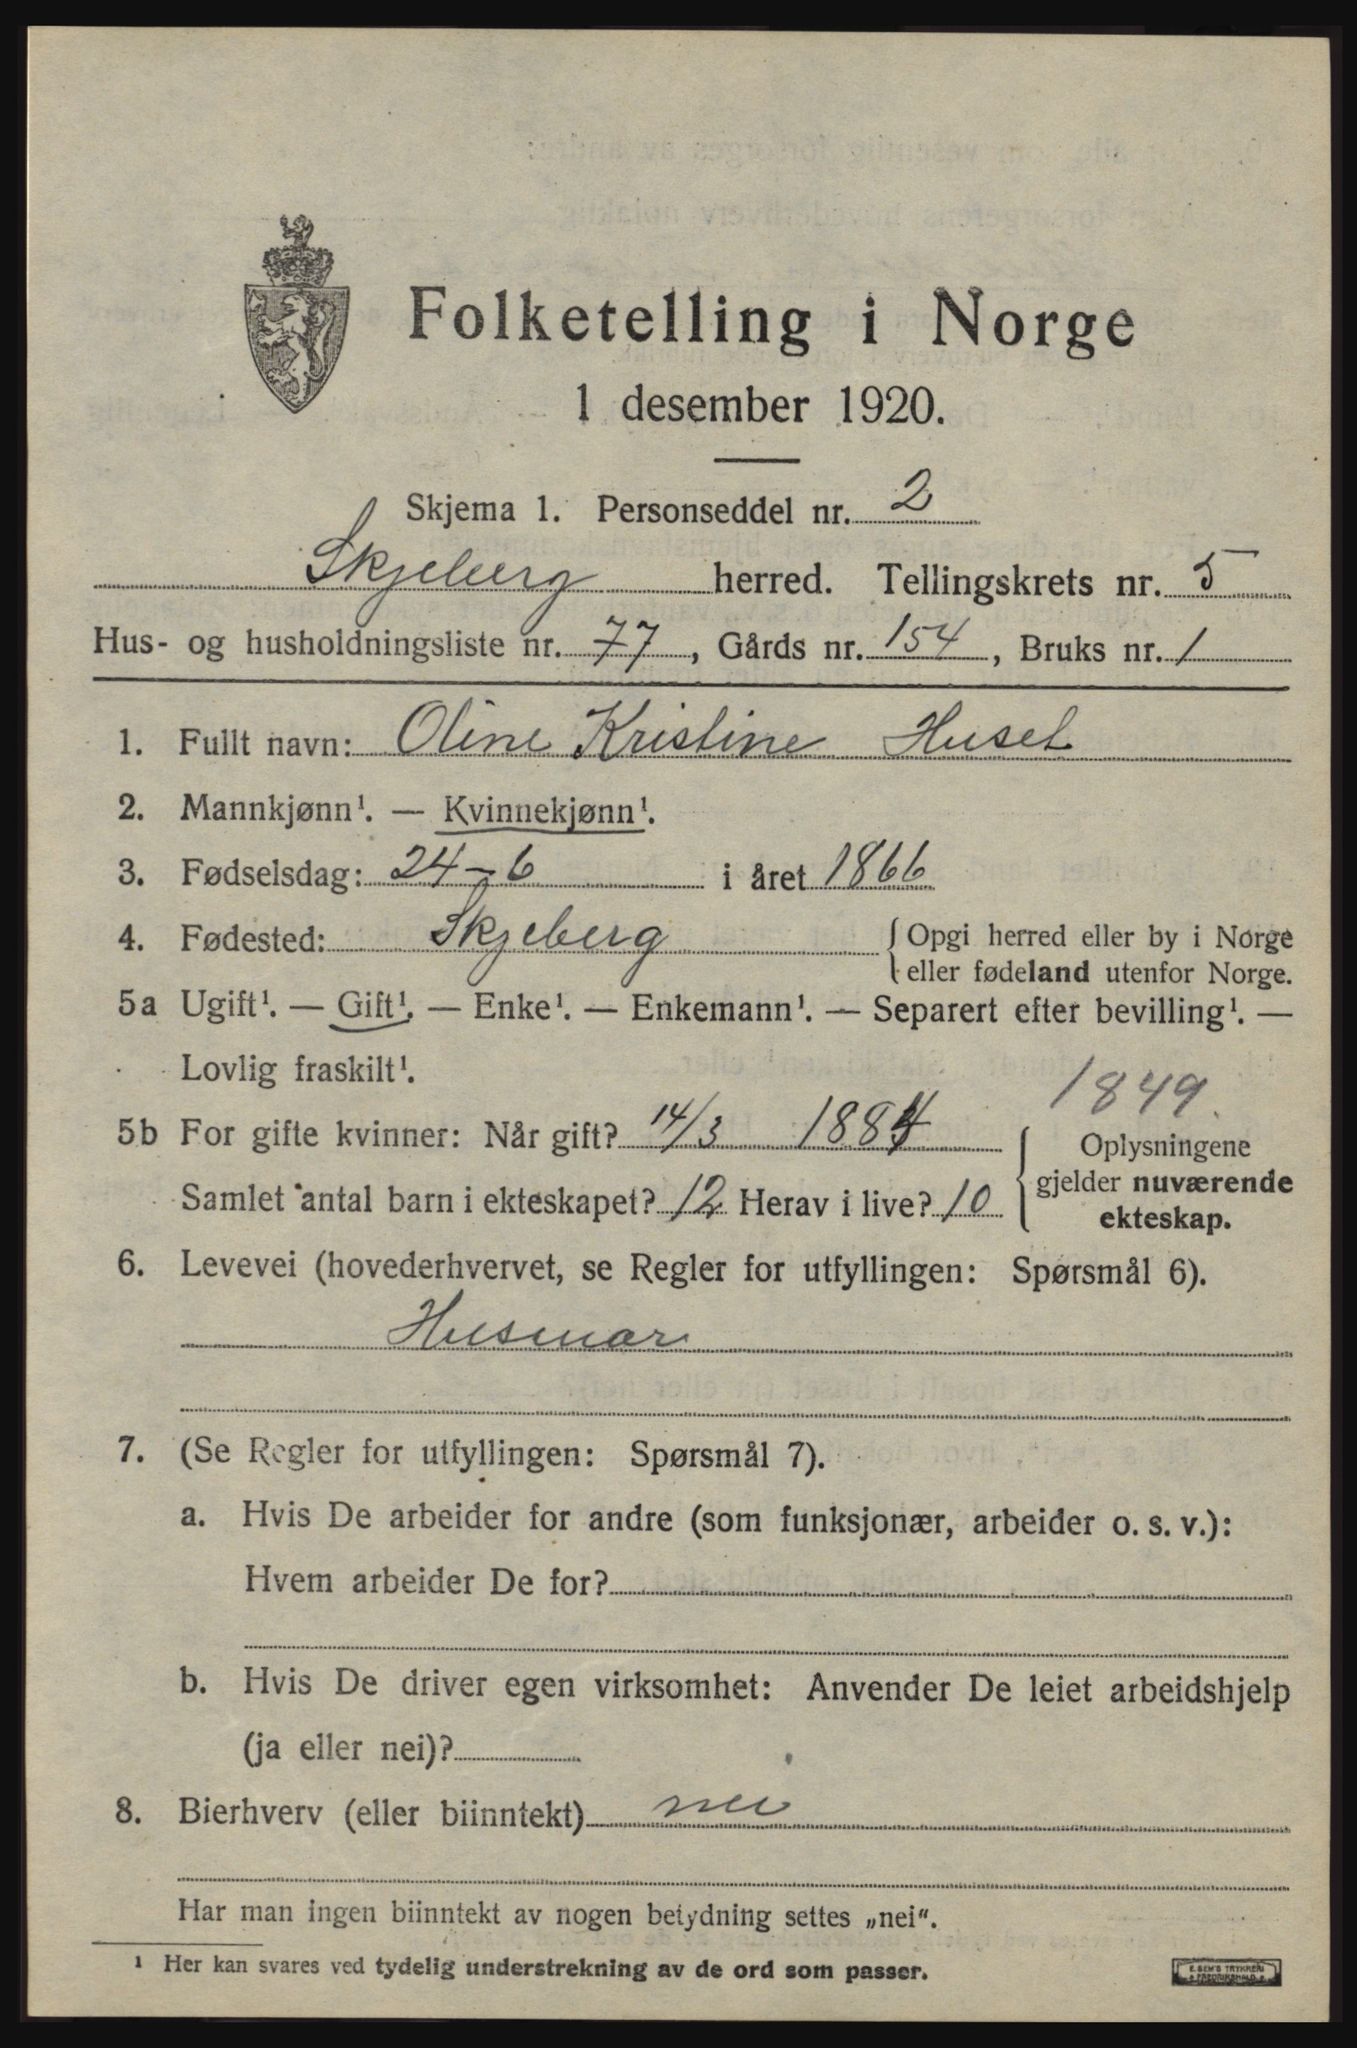 Folketelling i Norge
1 desember 1920.
Skjema 1. Personseddel nr. 2
Skjeberg herred. Tellingskrets nr. 5
Hus- og husholdningsliste nr. 77, Gårds nr. 154, Bruks nr. 1
1. Fullt navn: Oline Kristine Huset
2. Mannkjønn¹. — Kvinnekjønn¹.
3. Fødselsdag: 24-6 i året 1866
4. Fødested: Skjeberg { Opgi herred eller by i Norge
eller fødeland utenfor Norge.
5a Ugift¹. — Gift¹. — Enke¹. — Enkemann¹. — Separert efter bevilling¹. —
Lovlig fraskilt¹.
1849.
5b For gifte kvinner: Når gift? 14/3 1884
Samlet antal barn i ekteskapet? 12 Herav i live? 10
{ Oplysningene
gjelder nuværende
ekteskap.
6. Levevei (hovederhvervet, se Regler for utfyllingen: Spørsmål 6).
Husmor
7. (Se Regler for utfyllingen: Spørsmål 7).
a. Hvis De arbeider for andre (som funksjonær, arbeider o. s. v.):
Hvem arbeider De for?
b. Hvis De driver egen virksomhet: Anvender De leiet arbeidshjelp
(ja eller nei)?
8. Bierhverv (eller biinntekt) nei
Har man ingen biinntekt av nogen betydning settes „nei“.
¹ Her kan svares ved tydelig understrekning av de ord som passer.
E. SEM'S TRYKKERI
FREDRIKSHALD